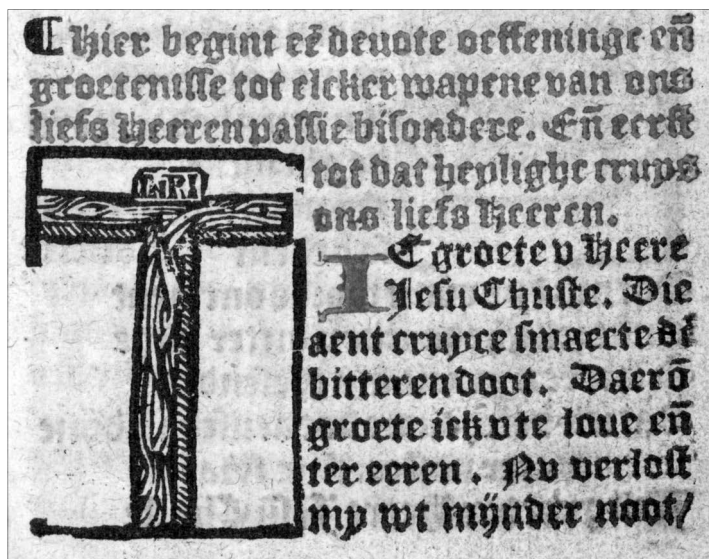 ¶ Hier begint eē deuote oeffeninge eñ
groetenisse tot elcker wapene van ons
liefs Heeren passie bisondere. Eñ eerst
tot dat heylighe cruys
ons liefs Heeren.
INRI
IC groete v Heere
Jesu Christe. Die
aent cruyce smaecte dē
bitteren doot. Daerō
groete ick v te loue eñ
ter eeren. Nv verlost
my wt mijnder noot/